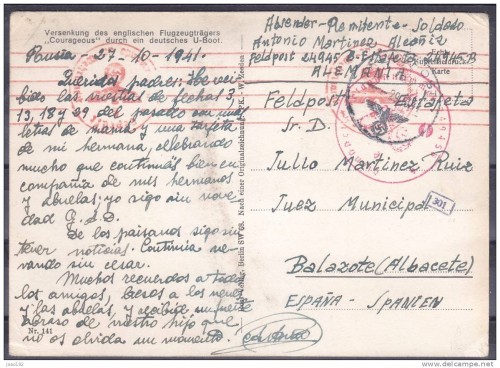 Versenkung des englischen Flugzeugträgers
„Courageous" durch ein deutsches U-Boot.
Rusia 27-10-1941.
Queridos padres: He reci-
bido las vuestras de fechas 3,
13, 18 y 29 del pasado con unas
letras de mamá y una tarjeta
de mi hermana, celebrando
mucho que continuáis bien en
compañía de mis hermanos
y abuelas; yo sigo sin nove-
dad G.a.D.
De los paisanos sigo sin
tener noticias. Continua ne-
vando sin cesar.
Muchos recuerdos a todos
los amigos, besos a los nenes
y las abuelas, y recibid un fuerte
abrazo de vuestro hijo que
no os olvida un momento.
Nr. 141
Berlin SW 68. Nach einer Originalzeichnung v. K.-W. Roeden
Absender-Remitente-Soldado
Antonio Martinez Alcañiz
Feldpost 24945 B-Estafeta 24945 B
ALEMANIA
Karte
Feldpost Estafeta
Sr. D.
Julio Martinez Ruiz
Juez Municipal
301
Balazote (Albacete)
ESPAÑA - SPANIEN
delcampe.net